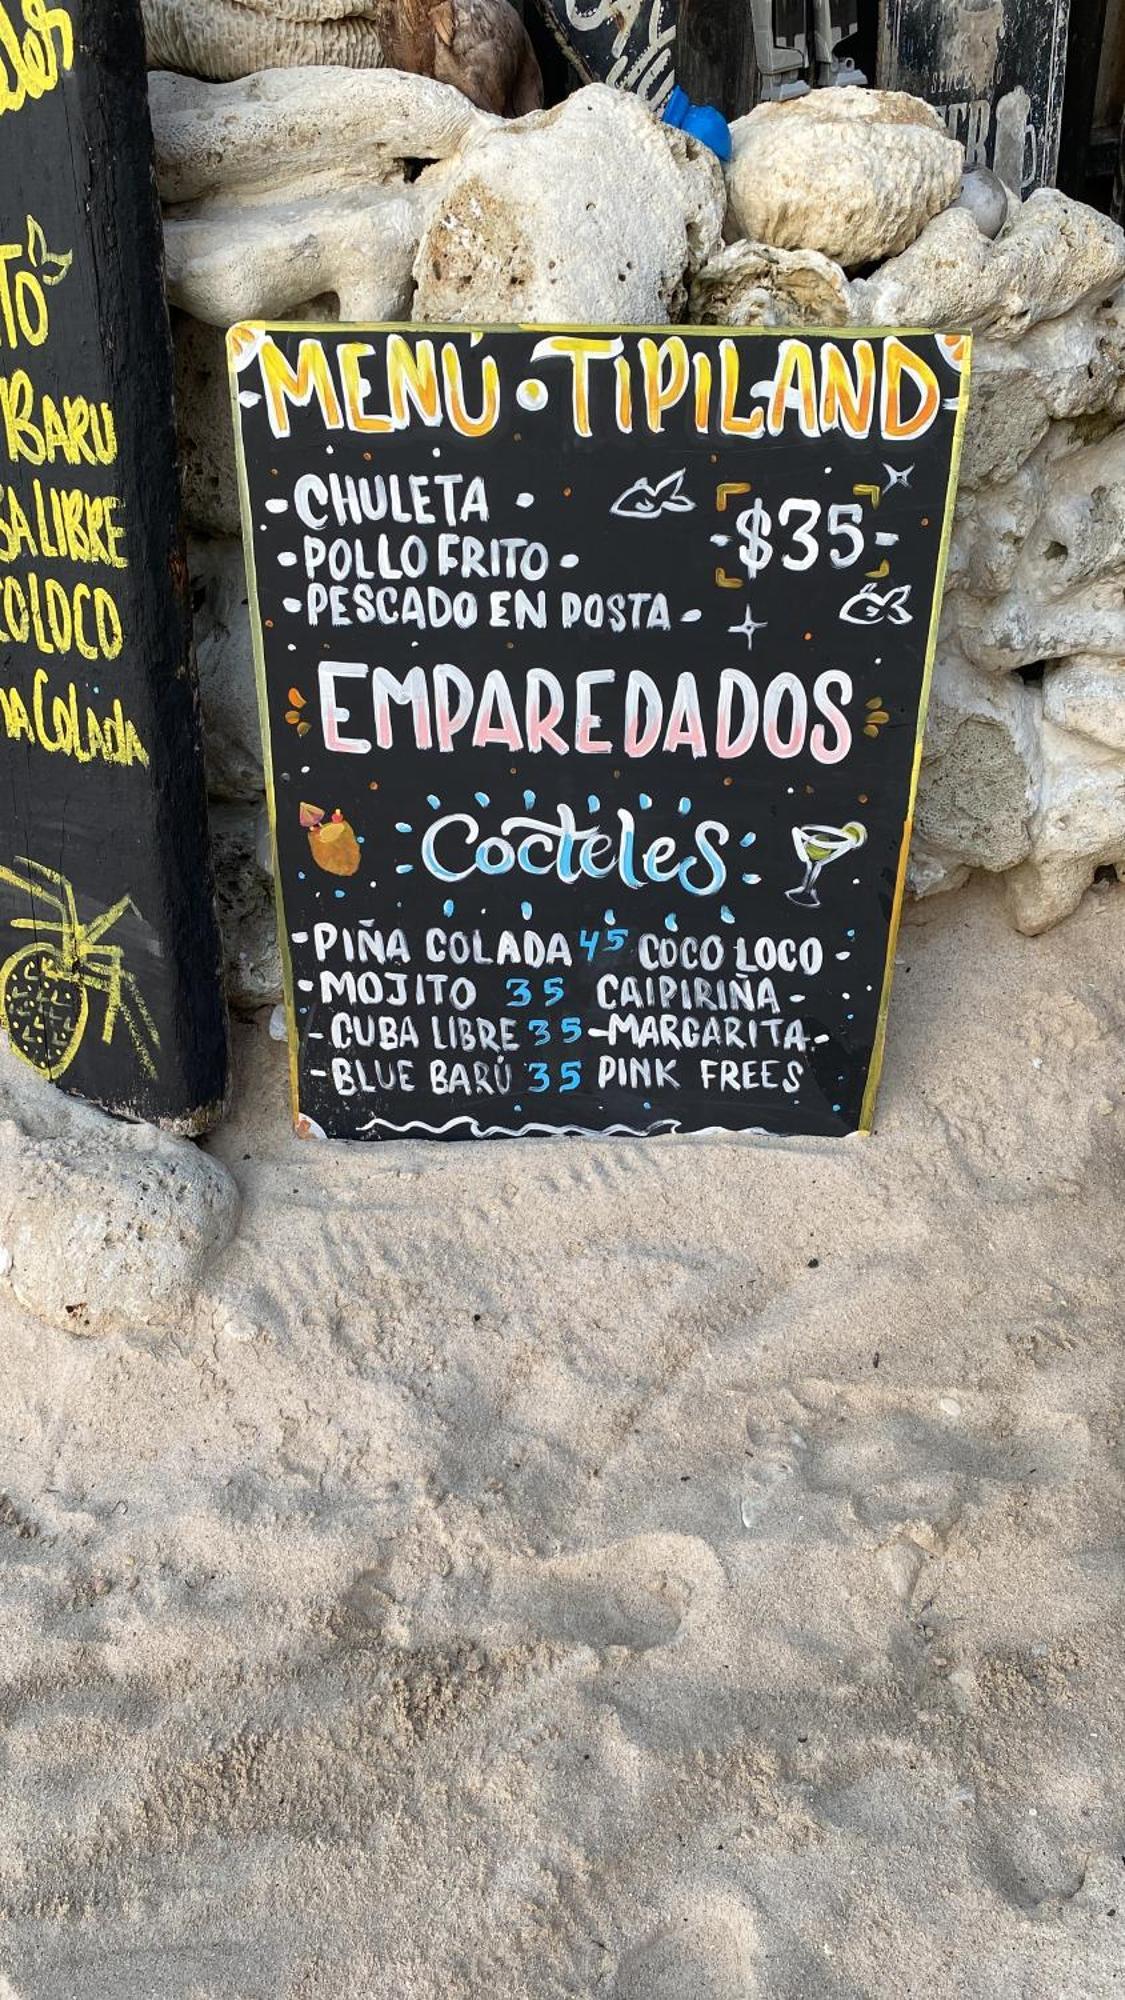 TO
BARU
LIBRE
COLOCO
COLADA
MENÚ • TIPILAND
- CHULETA -
- POLLO FRITO -
- PESCADO EN POSTA -
- $35 -
EMPAREDADOS
Cocteles
- PIÑA COLADA 45 COCO LOCO -
- MOJITO 35 CAIPIRIÑA -
- CUBA LIBRE 35 - MARGARITA -
- BLUE BARÚ 35 PINK FREES